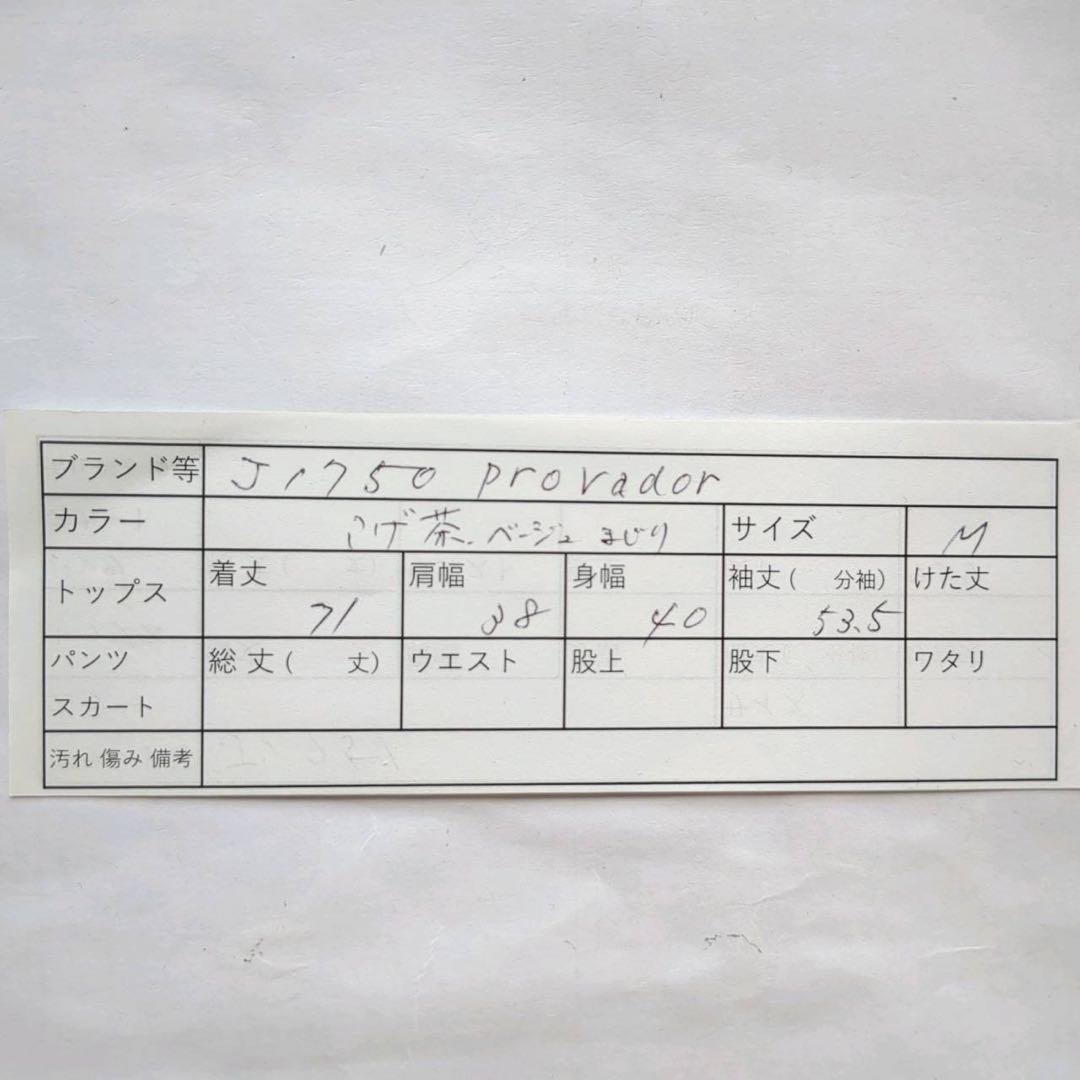 ブランド等 J1750 provador
カラー こげ茶.ベージュ まじり サイズ M
トップス 着丈 71 肩幅 38 身幅 40 袖丈( 分袖) 53.5 けた丈
パンツ スカート 総丈( 丈) ウエスト 股上 股下 ワタリ
汚れ 傷み 備考